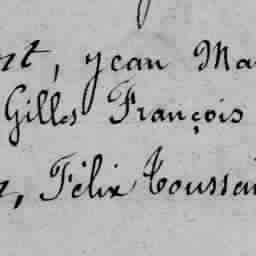 nt, Jean Ma
Gilles François
, Félix Toussai